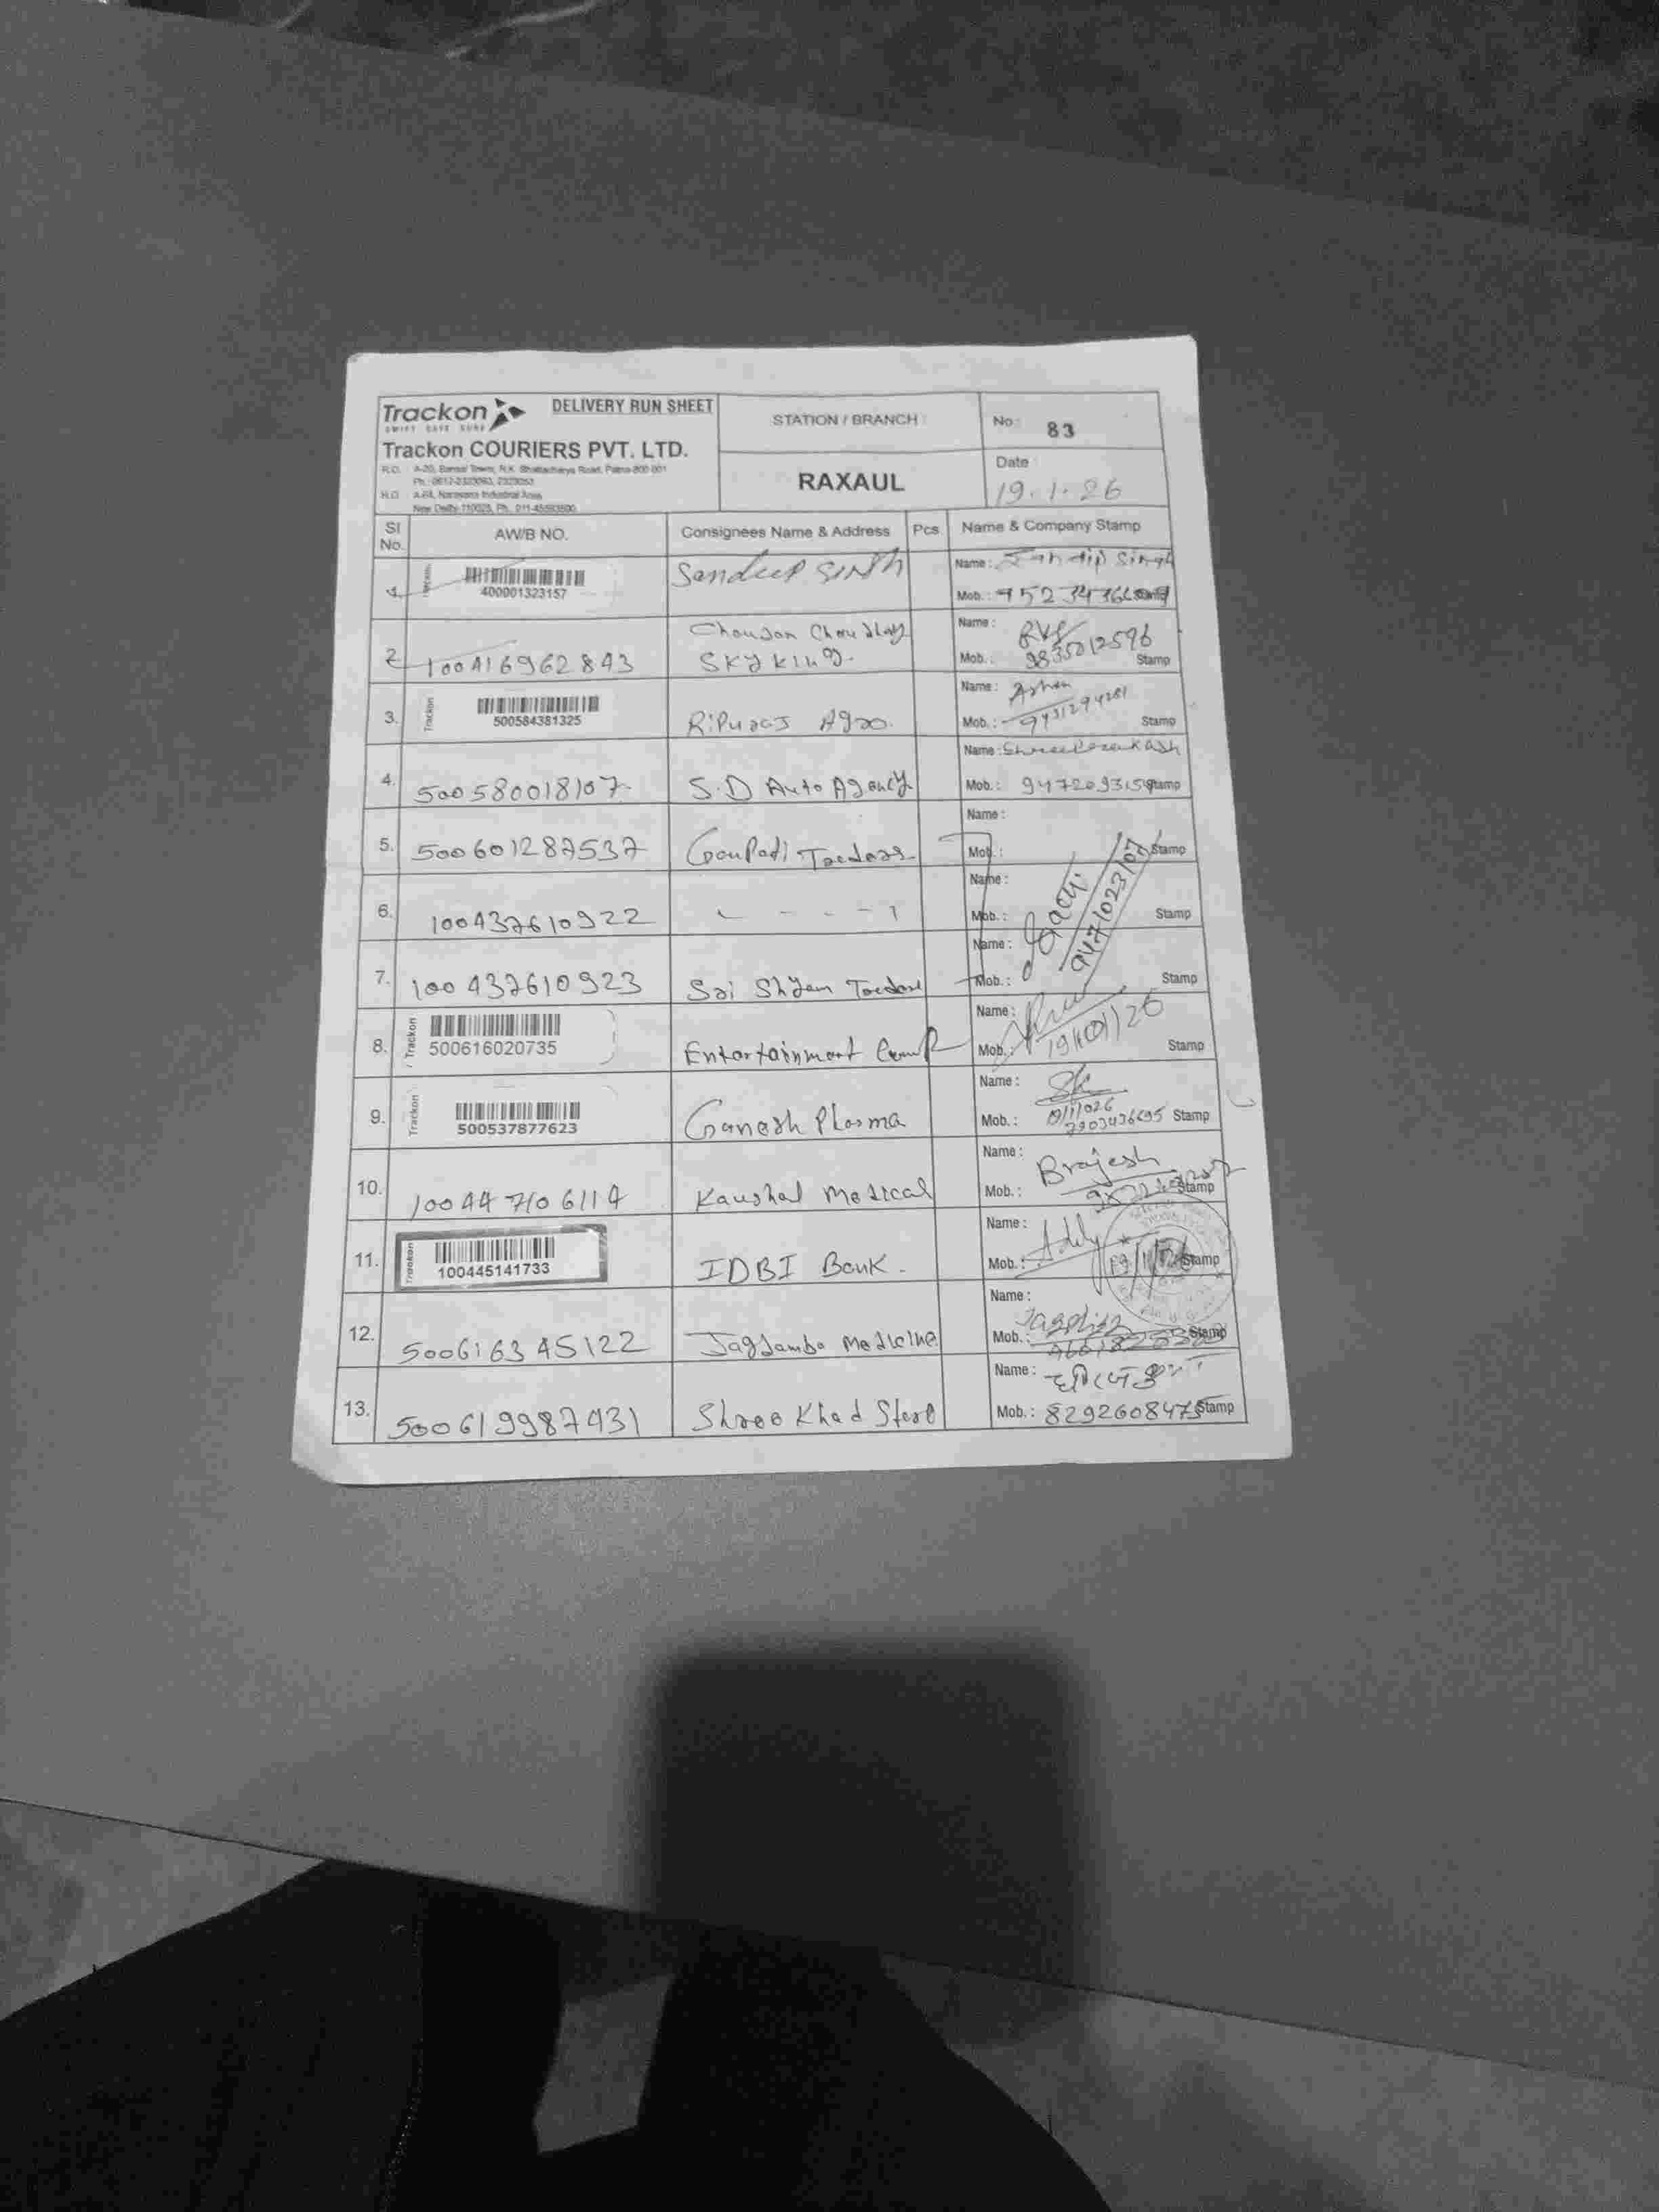 Trackon
SWIFT SAFE SURE
DELIVERY RUN SHEET
Trackon COURIERS PVT. LTD.
R.O. A-20, Bansal Tower, N.K. Bhattacharya Road, Patna-800 001
Ph.: 0612-2323093, 2323053
H.O. A-64, Narayana Industrial Area
New Delhi-110028, Ph. 011-45593500
STATION / BRANCH
RAXAUL
No 83
Date
19.1.26
Sl No. AW/B NO. Consignees Name & Address Pcs Name & Company Stamp
1. Trackon 400001323157 Sandeep Singh Name: Sandip Singh
Mob.: Stamp
2 100416962843 Choudhary
SKY King. Name:
Mob.: 9835012596 Stamp
3. Trackon 500584381325 Ripuraj Agro. Name:
Mob.: 9431294281 Stamp
4. 500580018107 S.D Auto Agency Name: Shree Prakash
Mob.: Stamp
5. 500601287537 Ganpati Traders Name:
Mob.: Stamp
6. 100437610922 Name:
Mob.: 9471023107 Stamp
7. 100437610923 Sai Shyam Traders Name:
Mob.: Stamp
8. Trackon 500616020735 Entertainment Name:
Mob.: 19/01/26 Stamp
9. Trackon 500537877623 Ganesh Plasma Name:
Mob.: 7903436695 Stamp
10. 100447106114 Kaushal Medical Name: Brajesh
Mob.: Stamp
11. Trackon 100445141733 IDBI Bank. Name:
Mob.: Stamp
12. 500616345122 Jagdamba Medicine Name:
Mob.: Stamp
13. 500619987431 Shree Khad Store Name:
Mob.: 8292608475 Stamp